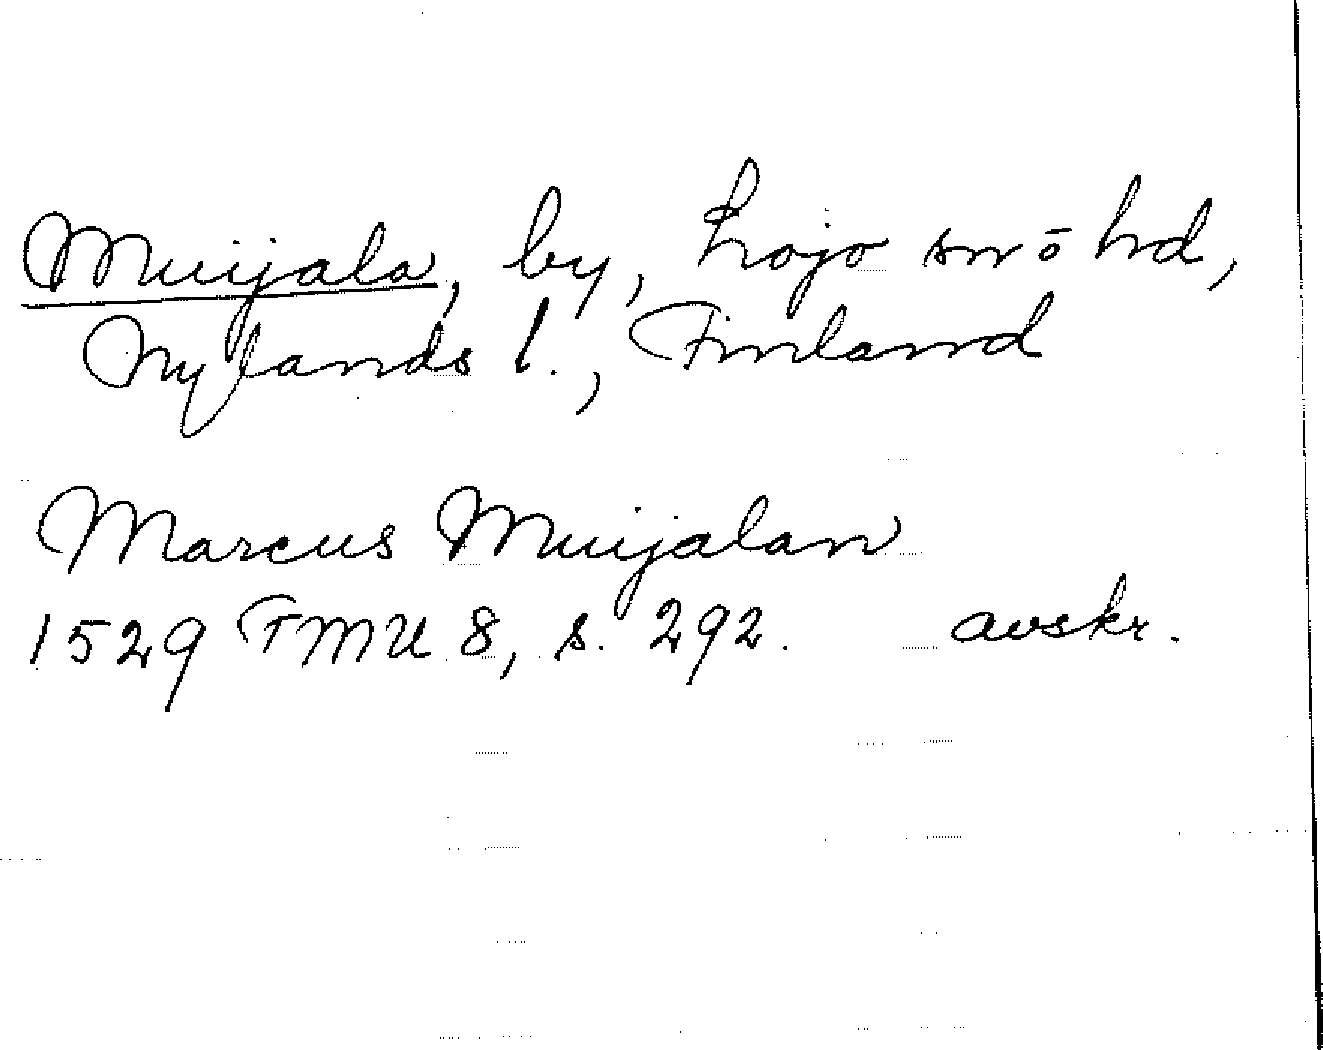 Muijala, by, Lojo sn o hd,
Nylands l., Finland
Marcus Muijalan
1529 FMU 8, s. 292. avskr.